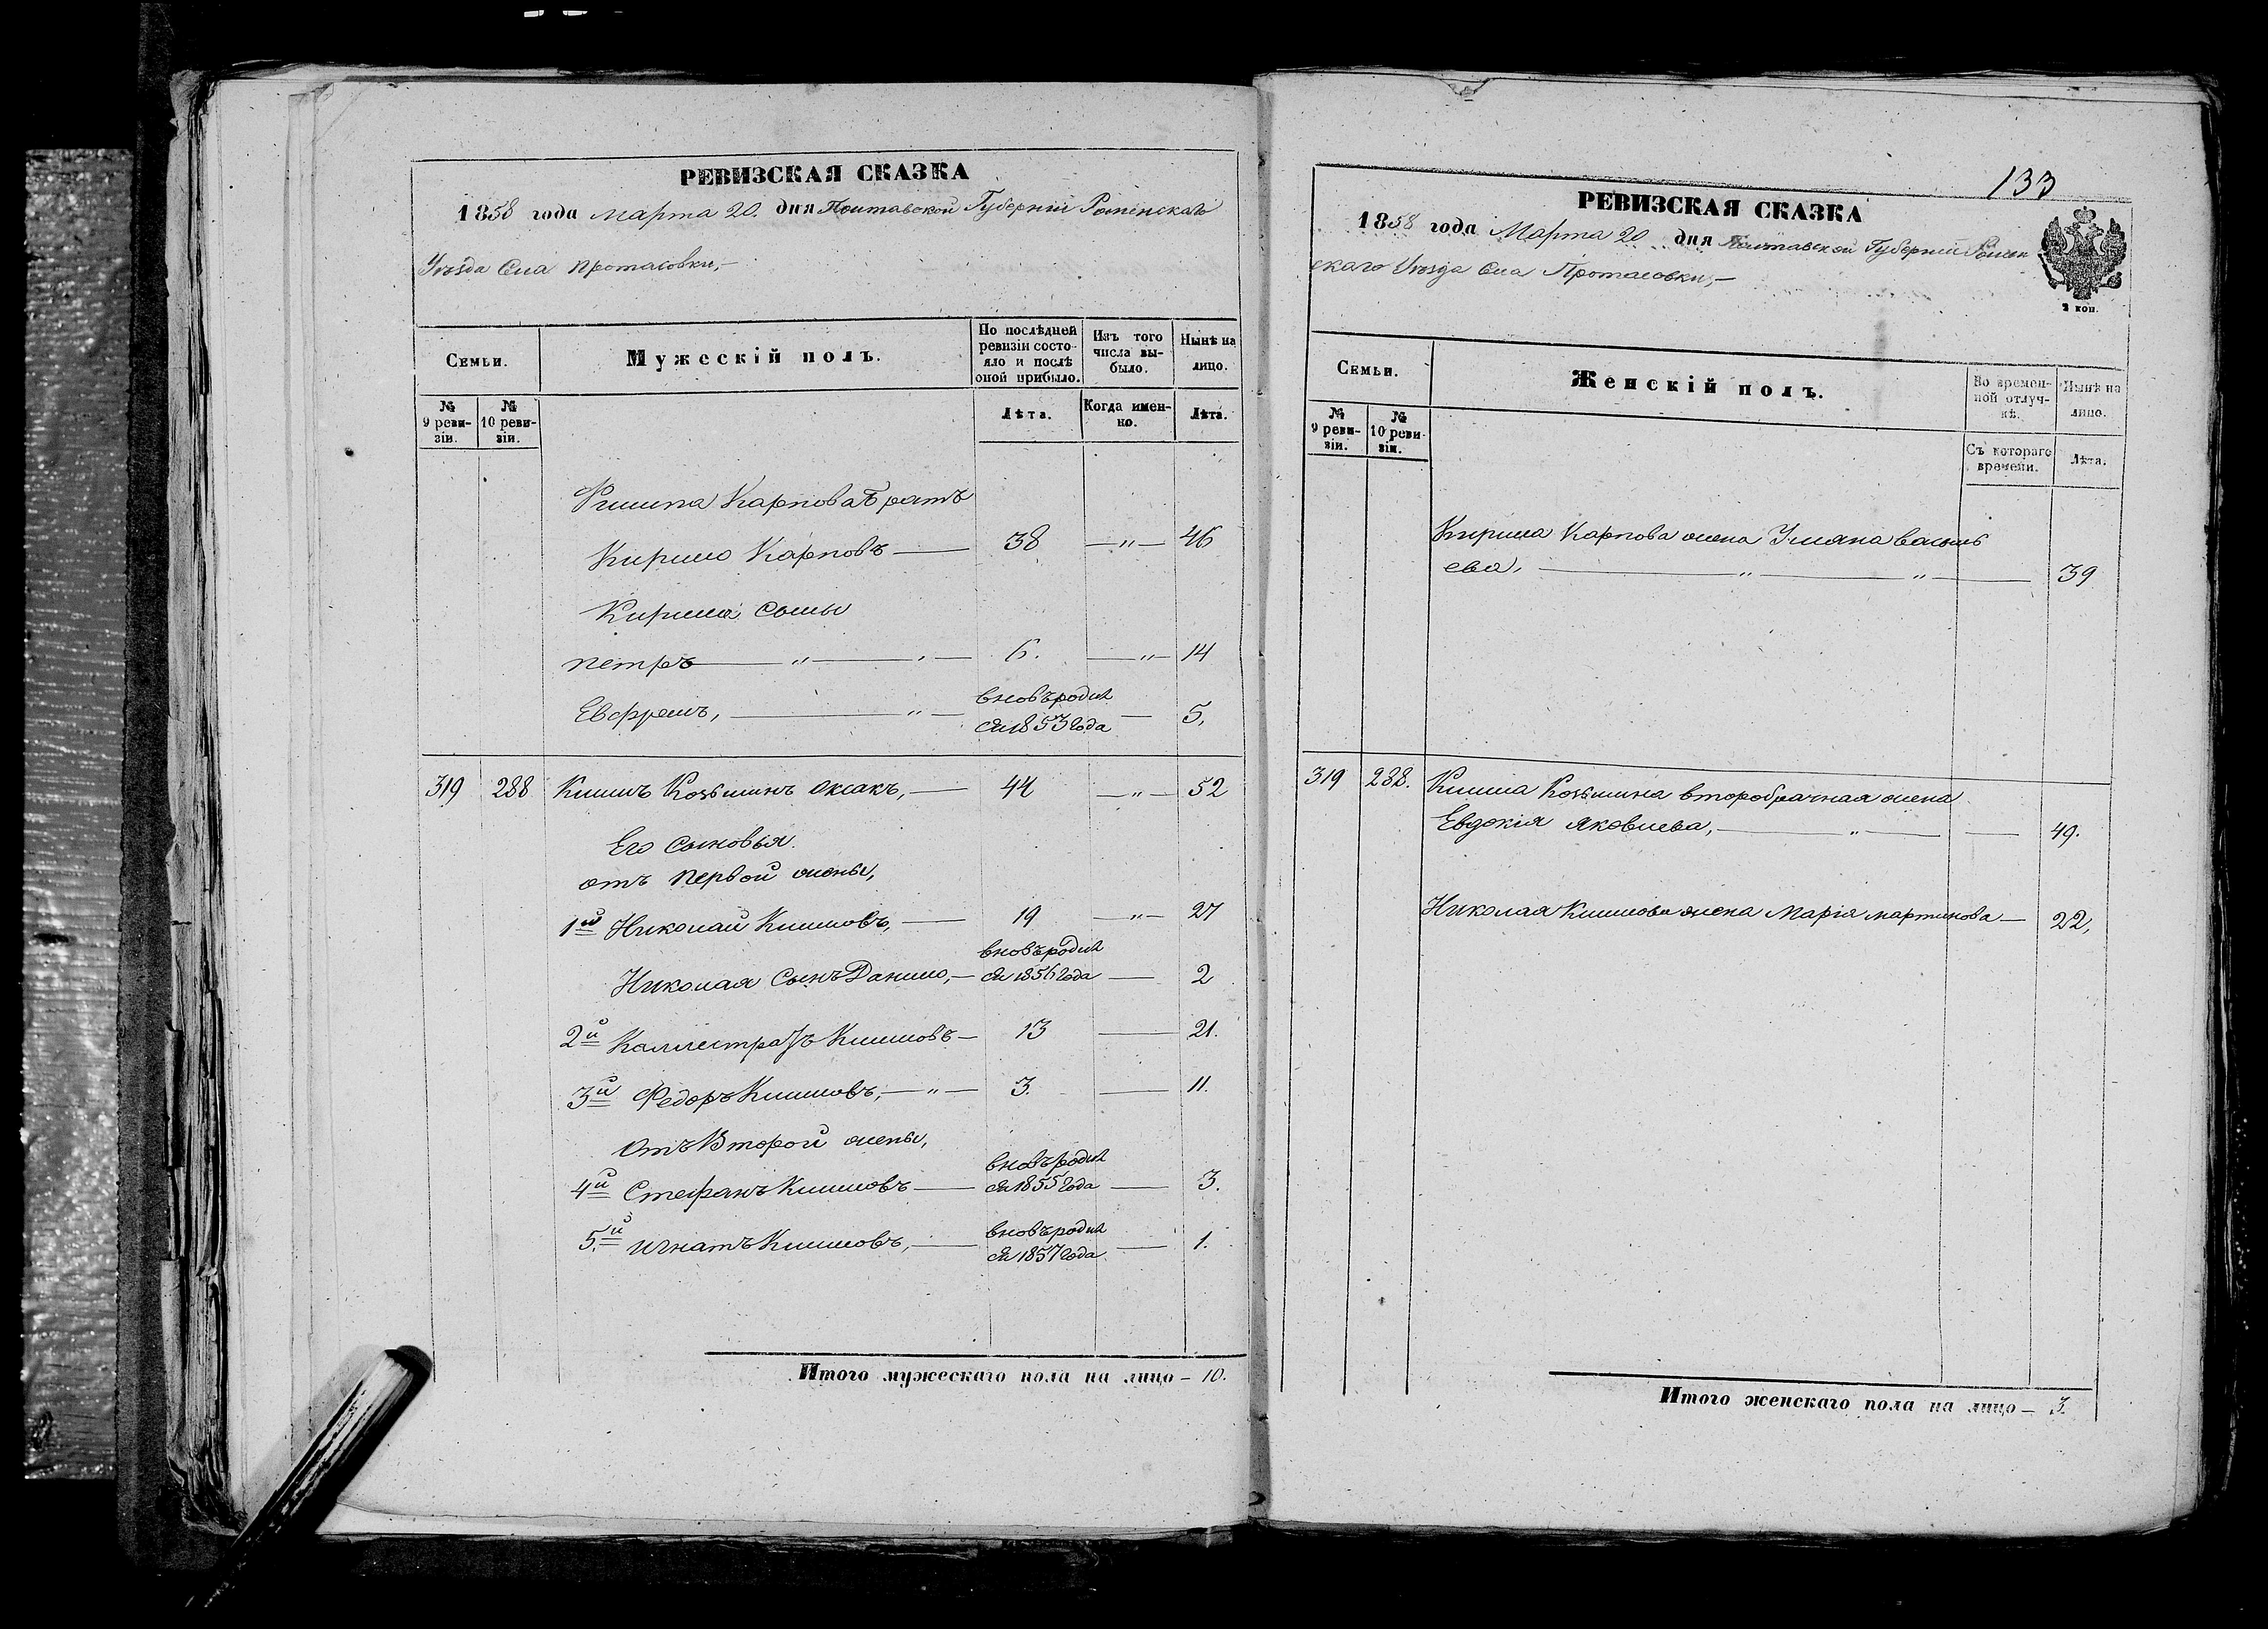 РЕВИЗСКАЯ СКАЗКА
1858 года Марта 20. дня Полтавской Губерніи Роменскаго
Уѣзда Села Протасовки,—
Семьи.
Мужескій полъ.
По послѣдней ревизіи состояло и послѣ оной прибыло.
Изъ того числа выбыло.
Нынѣ на лицо.
№ 9 ревизіи.
№ 10 ревизіи.
Лѣта.
Когда именно.
Лѣта.
Филипа Карпова Братъ
Кирило Карповъ — 38 — „ — 46
Кирила Сыны
Петръ — „ — „ — 6. — „ — 14
Евфремъ, — „ — вновь родил
ся 1853 года — 5,
319 288 Климъ Козьминъ Оксакъ, — 44 — „ — 52
Его Сыновья.
отъ Первой жены,
1й Николай Климовъ, — 19 — „ — 27
Николая Сынъ Данило, — вновь родил
ся 1856 года — 2
2й Каллистратъ Климовъ — 13 — 21.
3й Федоръ Климовъ, — „ — 3. — 11.
Отъ Второй жены,
4й Стефанъ Климовъ — вновь родил
ся 1855 года — 3.
5.й Игнатъ Климовъ, — вновь родил
ся 1857 года — 1.
Итого мужескаго пола на лицо — 10.
133
РЕВИЗСКАЯ СКАЗКА
1858 года Марта 20 дня Полтавской Губерніи Ромен
скаго Уѣзда Села Протасовки,—
2 коп.
Семьи.
Женскій полъ.
Во временной отлучкѣ.
Нынѣ на лицо.
№ 9 ревизіи.
№ 10 ревизіи.
Съ котораго времени.
Лѣта.
Кирила Карпова жена Уляна Василь
ева, — „ — „ — 39
319 288. Клима Козьмина второбрачная жена
Евдокія Яковлева, — „ — — 49.
Николая Климова жена Марія Мартинова — 22,
Итого женскаго пола на лицо — 3.